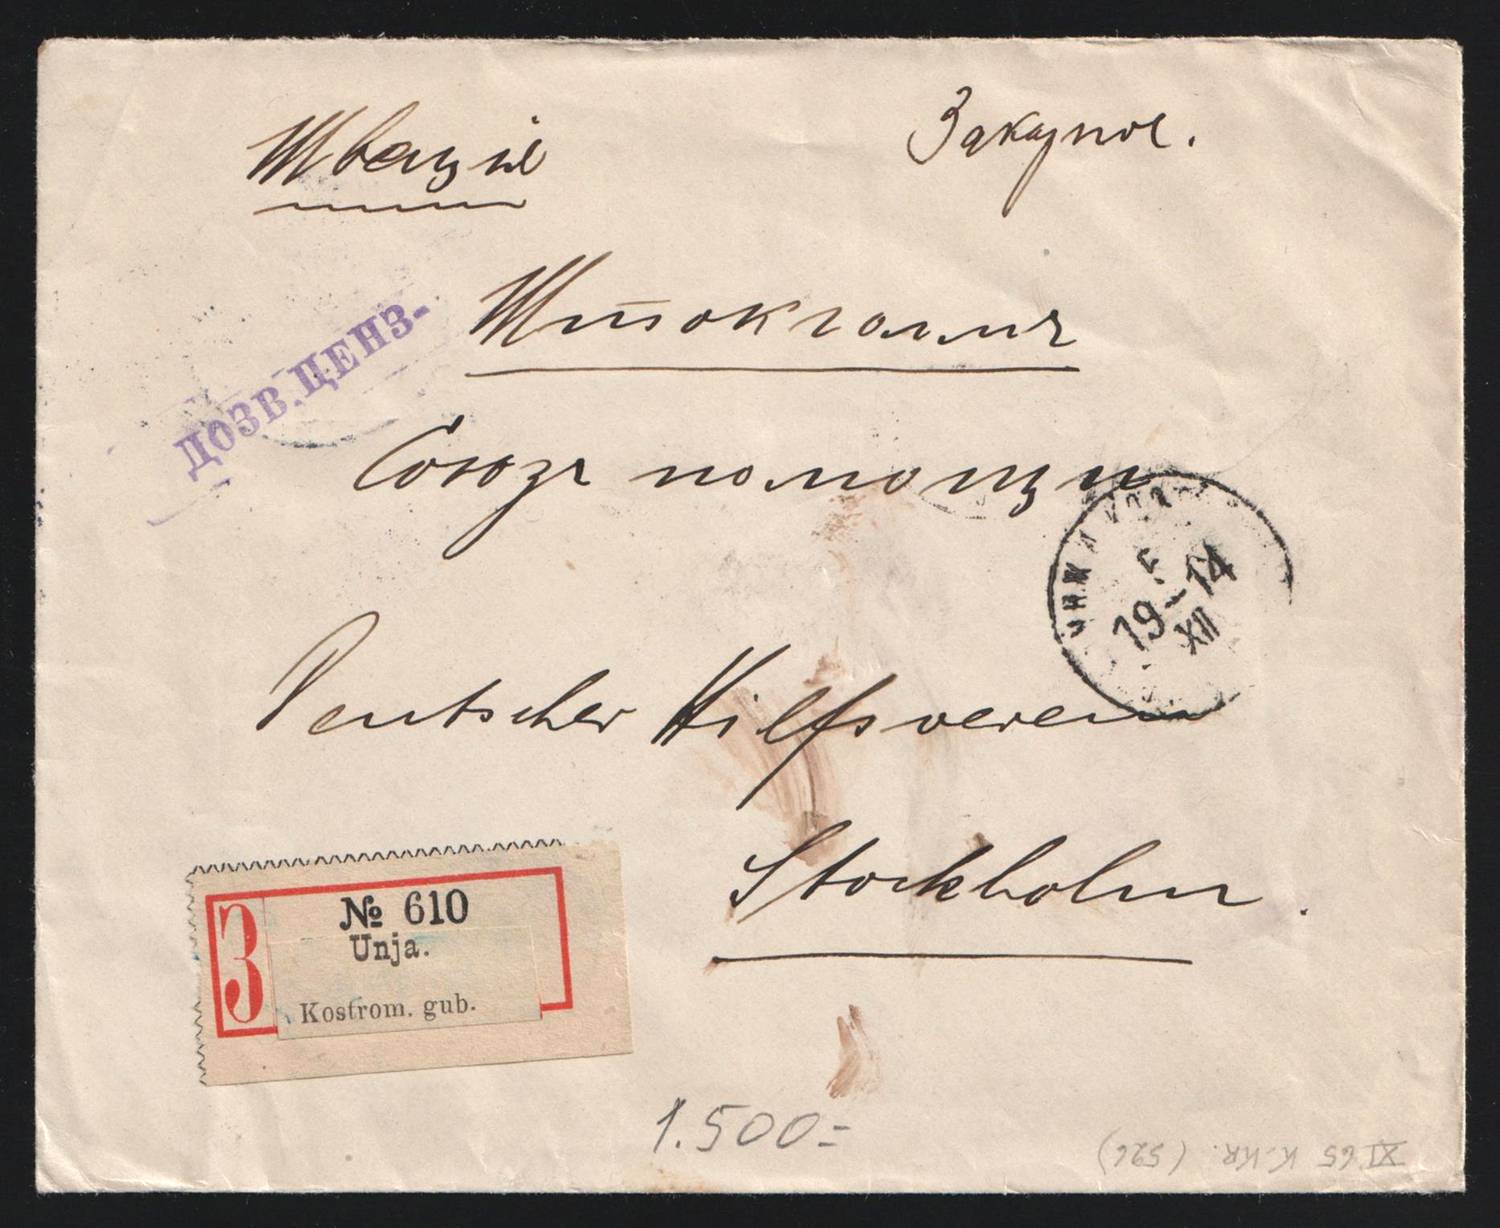 Швеція
Закупное.
Штокгольмъ
ДОЗВ. ЦЕНЗ-
Союзъ помощи
5
19-14
XII
Deutscher Hilfsverein
Stockholm.
З
№ 610
Unja.
Kostrom. gub.
1.500=
XI 65 K.KR. (526)